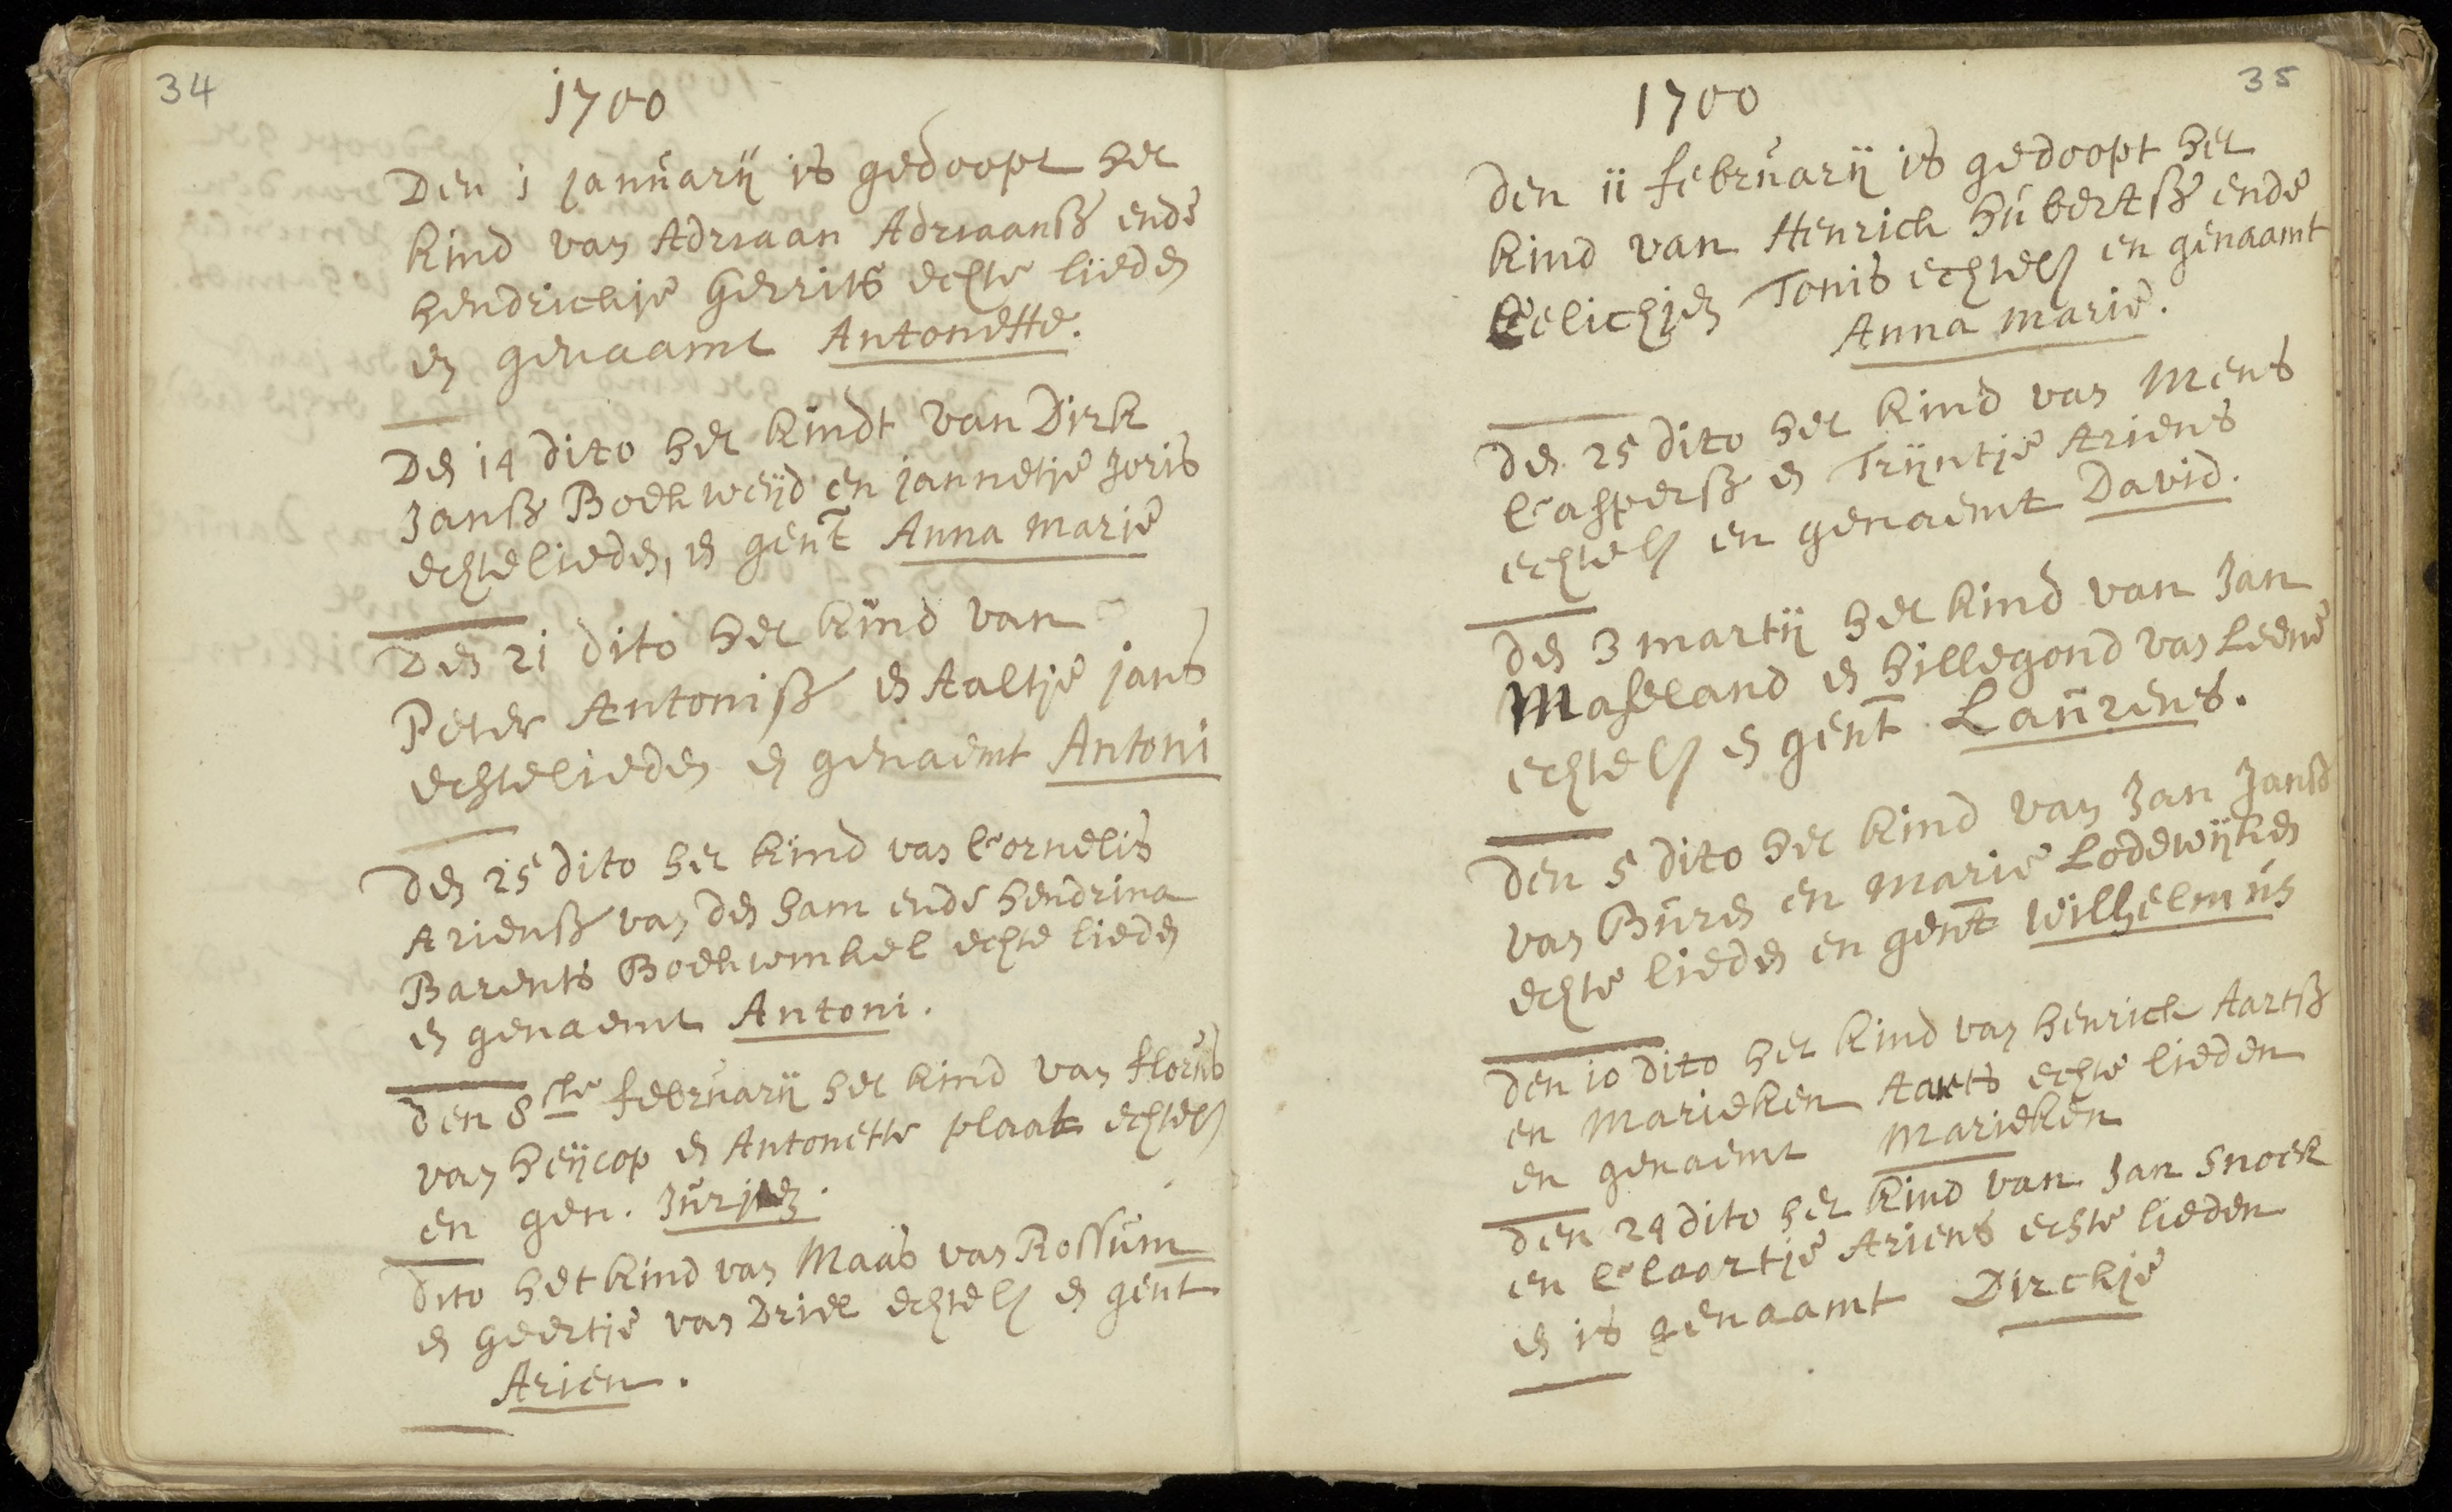 34
1700
Den 1 januarij is gedoopt het
kind van Adriaan Adriaansz ende
hendrickje Gerrits echte lieden
en genaamt Antonette.
Den 14 dito het kindt van Dirk
Jansz Boekweijd en jannetje Joris
echtelieden, en gent Anna Marie
Den 21 dito het kind van
Peter Antonisz en Aaltje jans
echtelieden en genaemt Antoni
Den 25 dito het kind van Cornelis
Ariensz van den ham ende hendrina
Barents Boekwinkel echte lieden
en genaemt Antoni.
den 8ste februarij het kind van florus
van heijcop en Antonette plaat echtel
en gen. Jurjen.
dito het kind van Maas van Rossum
en geertje van Driel echtel en gent
Arien.
35
1700
den 11 februarij is gedoopt het
kind van Henrich hubertsz ende
Celichjen Tonis echtel en genaamt
Anna Marie.
den 25 dito het kind van Mens
Caspersz en Trijntje Ariens
echtel en genaemt David.
den 3 martij het kind van Jan
Maseland en hillegond van Leene
echtel en gent Laurens.
den 5 dito het kind van Jan Janse
van Buren en Marie Lodewijken
echte lieden en gent Wilhelmus
den 10 dito het kind van henrich Aartsz
en Marieken Aarts echte lieden
en genaemt Marieken
den 24 dito het kind van Jan Snoek
en Claartje Ariens echte lieden
en is genaamt Dirckje